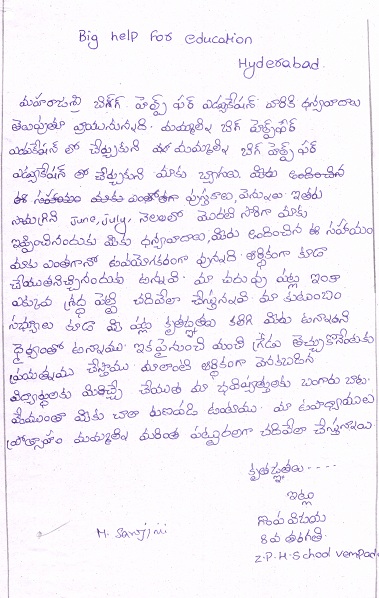 Big help For education
Hyderabad.
మహారాజశ్రీ బిగ్ హెల్ప్ ఫర్ ఎడ్యుకేషన్ వారికి ధన్యవాదాలు
తెలుపుతూ వ్రాయునున్నది. మమ్మల్ని బిగ్ హెల్ప్ ఫర్
ఎడుకేషన్ లో చేర్చుకుని మా మమ్మల్ని బిగ్ హెల్ప్ ఫర్
ఎడ్యుకేషన్ లో చేర్చుకుని మాకు బ్యాగులు, మీరు అందించిన
ఈ సహాయం మాకు ఎంతోగా పుస్తకాలు, పెన్నులు ఇతర
సామగ్రిని june, july, నెలలలో మొదటి సారిగా మాకు
ఇప్పించినందుకు మీకు ధన్యవాదాలు, మీరు అందించిన ఈ సహాయం
మాకు ఎంతగానో ఉపయోగకరంగా వున్నది. ఆర్థికంగా కూడా
చేయూతనిచ్చినందుకు ఉన్నవి. మా చదువు పట్ల ఇంకా
ఎక్కువ శ్రద్ధ పెట్టి చదివేలా చేస్తున్నవి. మా కుటుంబం
సభ్యులు కూడా మీ పట్ల కృతజ్ఞతలు కలిగి మీరు ఉన్నారనే
ధైర్యంతో ఉన్నాము. ఇకపైనుంచి మంచి గ్రేడు తెచ్చుకొనేందుకు
ప్రయత్నము చేస్తాము. మాలాంటి ఆర్థికంగా వెనకబడిన
విద్యార్థులకు మీరిచ్చే చేయూత మా భవిష్యత్తులకు బంగారు బాట.
మేమంతా మీకు చాలా రుణపడి ఉంటాము. మా ఉపాధ్యాయుల
ప్రోత్సాహం మమ్మల్ని మరింత పట్టుదలగా చదివేలా చేస్తున్నాయి.
కృతజ్ఞతలు....
ఇట్లు
విజయ
8వ తరగతి.
M. Sarojini
Z.P.H.School